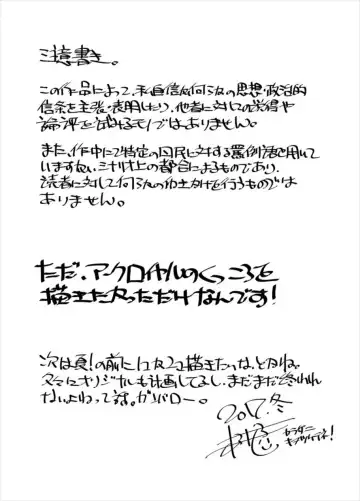 注意書き。
この作品によって、私自信が何らかの思想・政治的
信条を主張・表明したり、他者に対しての説得や
論評を試みるモノではありません。
また、作中にて特定の国民に対する罵倒語を用いて
いますがシナリオ上の都合によるものであり、
読者に対して何らかの働きかけを行うものでは
ありません。
ただ、アークロイヤルのくっころを
描きたかっただけなんです!
次は夏!の前に描きたいな、とかね。
さらにオリジナルも計画してるし、まだまだ終われ
ないよねって話。ガンバロー。
2017.冬